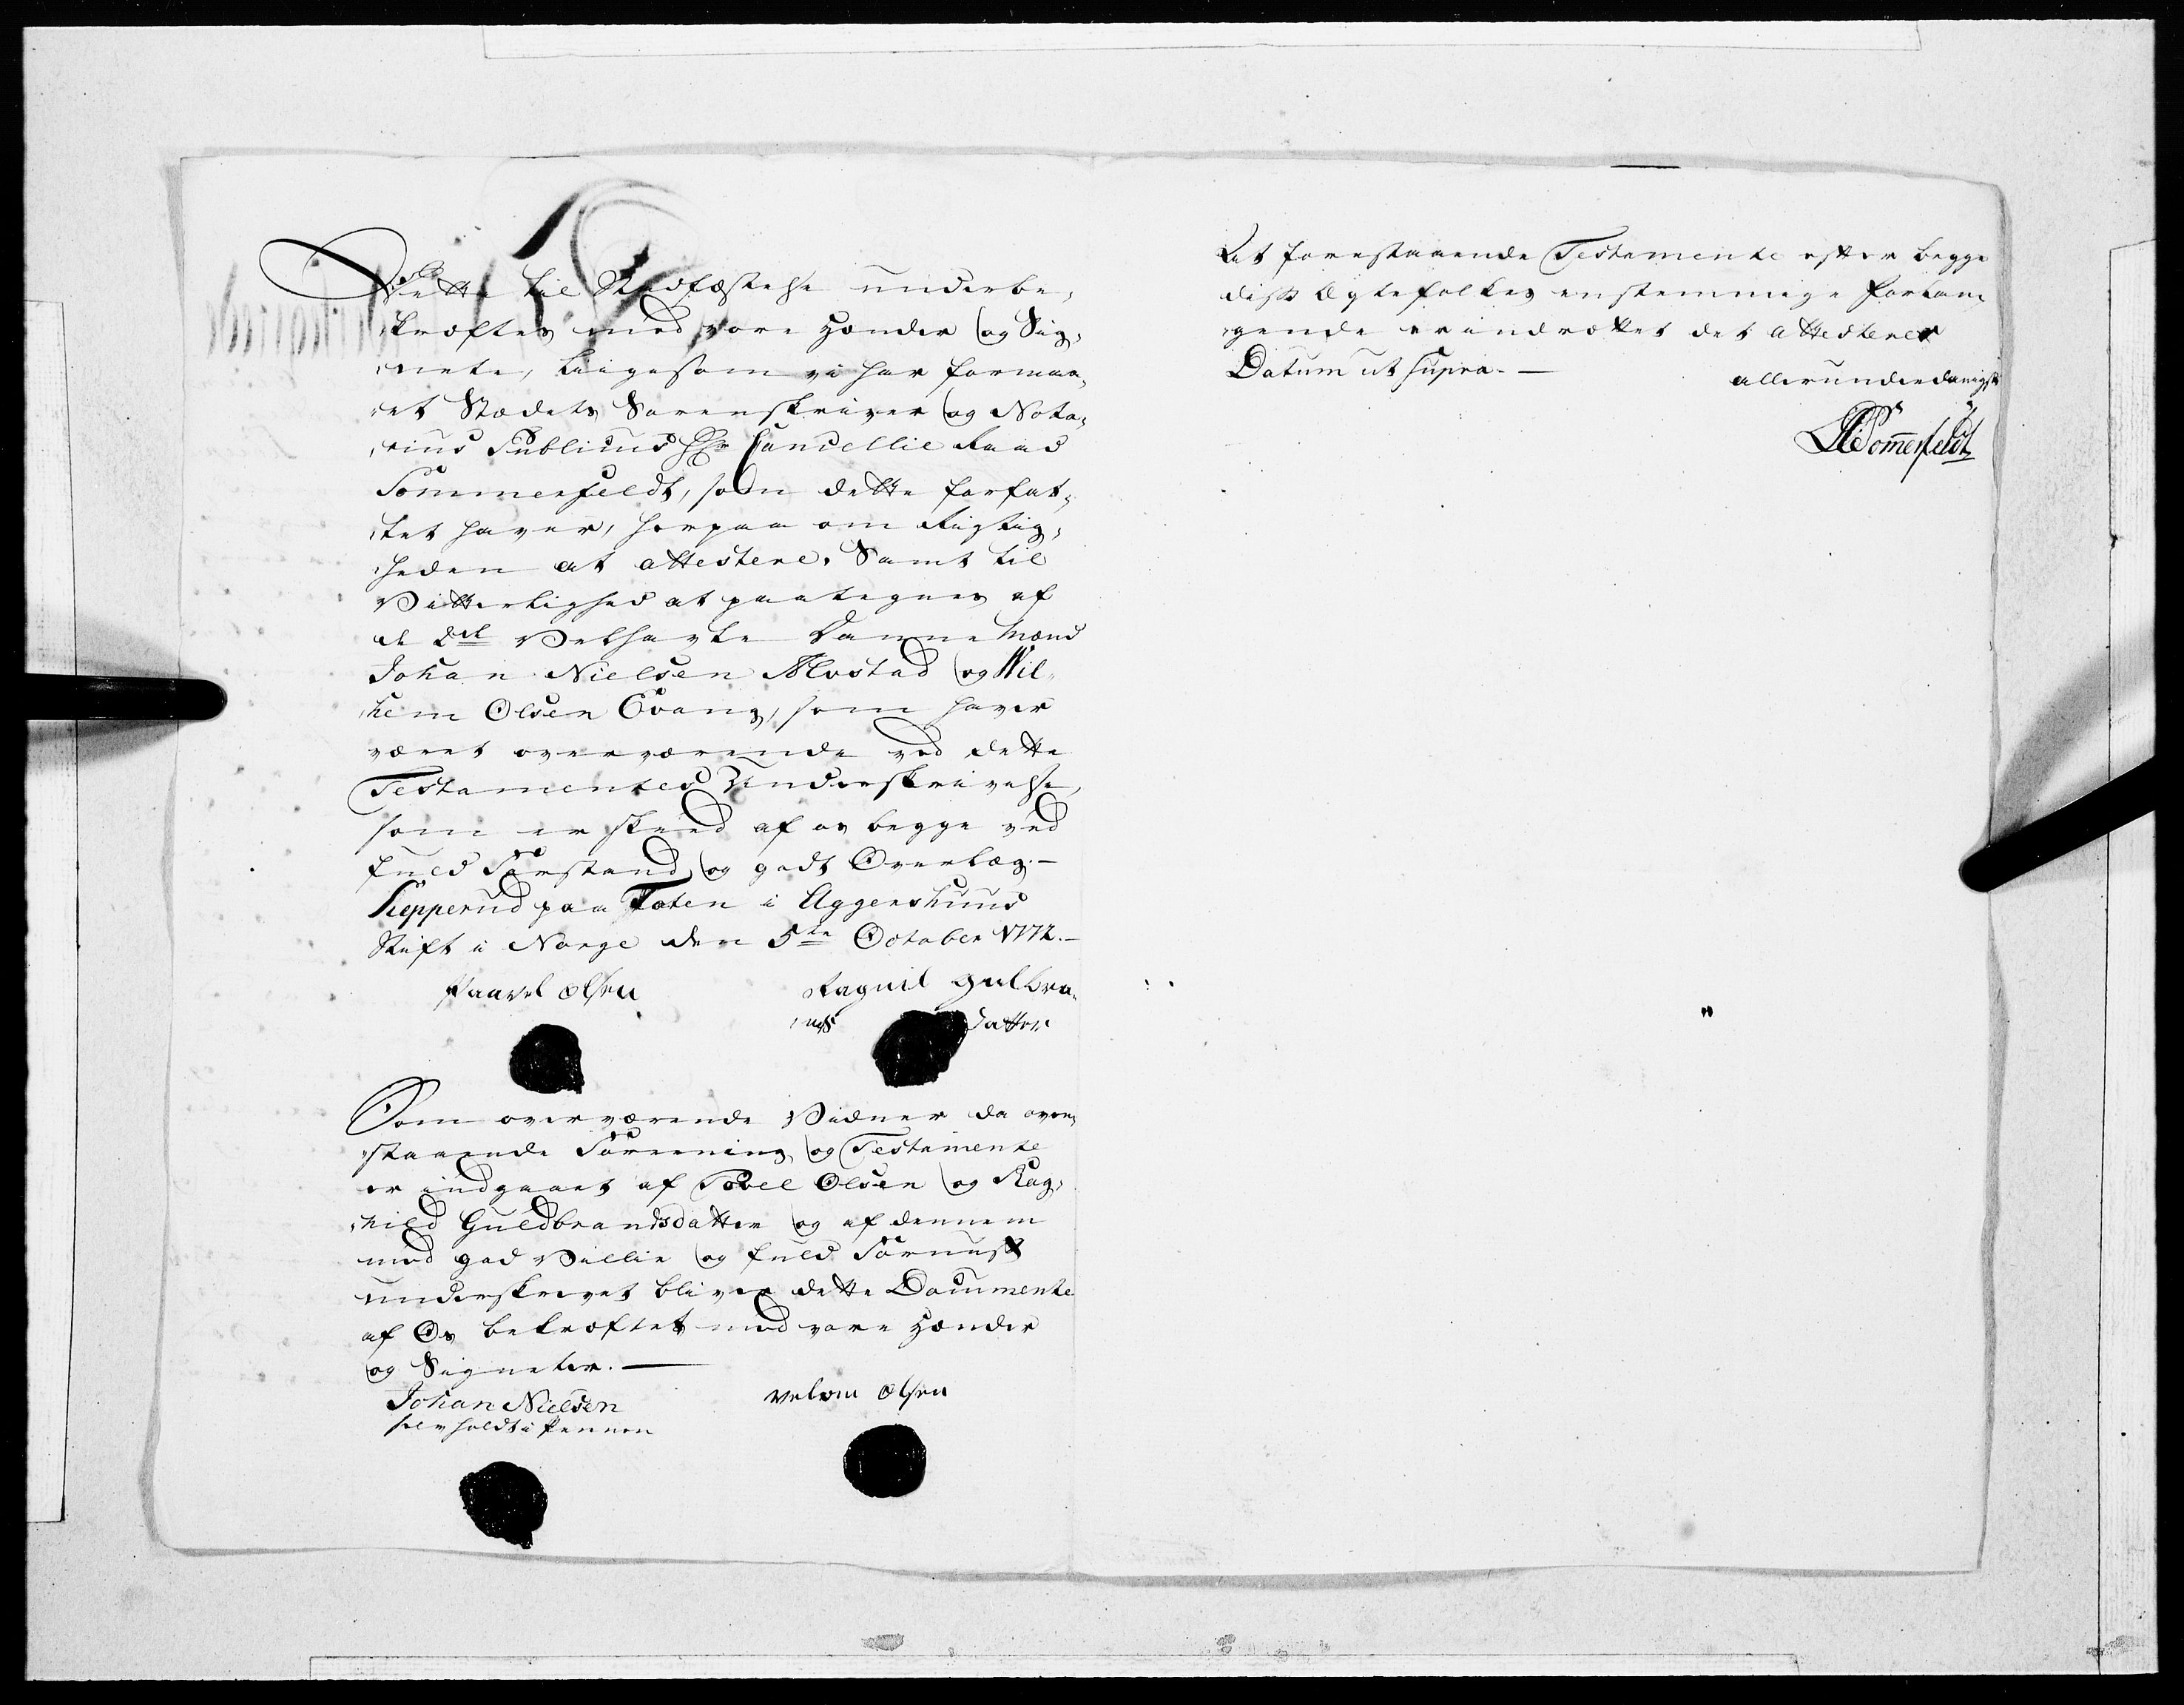 Dette til Stadfæstelse underbe,
kræftes med vore Hænder og Sig,
nete, liigesom vi har formaa,
et Stædets Sorenskriver og Nota,
rius Publicus Hr Cancellie Raad
Sommerfeldt, som dette forfat,
tet haver, herpaa om Rigtig,
heden at attestere. Samt til
Vitterlighed at paategnes af
de 2de Velhavte Danne Mænd
Johan Nielsen Alvstad og Wil,
helm Olsen Evang, som haver
været overværende ved dette
Testamentes Underskrivelse,
som er skeed af os begge ved
fuld Forstand og godt Overlæg. —
Kepperud paa Toten i Aggershuus
Stift i Norge den 5te October 1772. —
Paavel Olsen Ragnil Gulbra,
nds datter
Som overværende Vidner da oven,
staaende Foreening og Testamente
er indgaaet af Povel Olsen og Rag,
nild Guldbrandsdatter og af dennem
med god Villie og fuld Fornuft
underskrevet bliver dette Documente
af Os bekræftet med vore Hænder
og Signeter. —
Johan Nielsen Velom Olsen
selv holdt i Pennen
At forestaaende Testamente efter begge
disse Ægtefolkes enstemmige Forlan,
gende er indrættet det attesterer
Datum ut supra. —
allerunderdanigst
Sommerfeldt